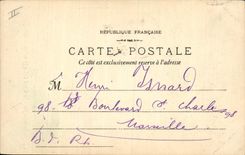 II
RÉPUBLIQUE FRANÇAISE
CARTE POSTALE
Ce côté est exclusivement réservé à l'adresse
M Henri Isnard
98. Boulevard St Charles 98
Marseille
B. d. Rh.